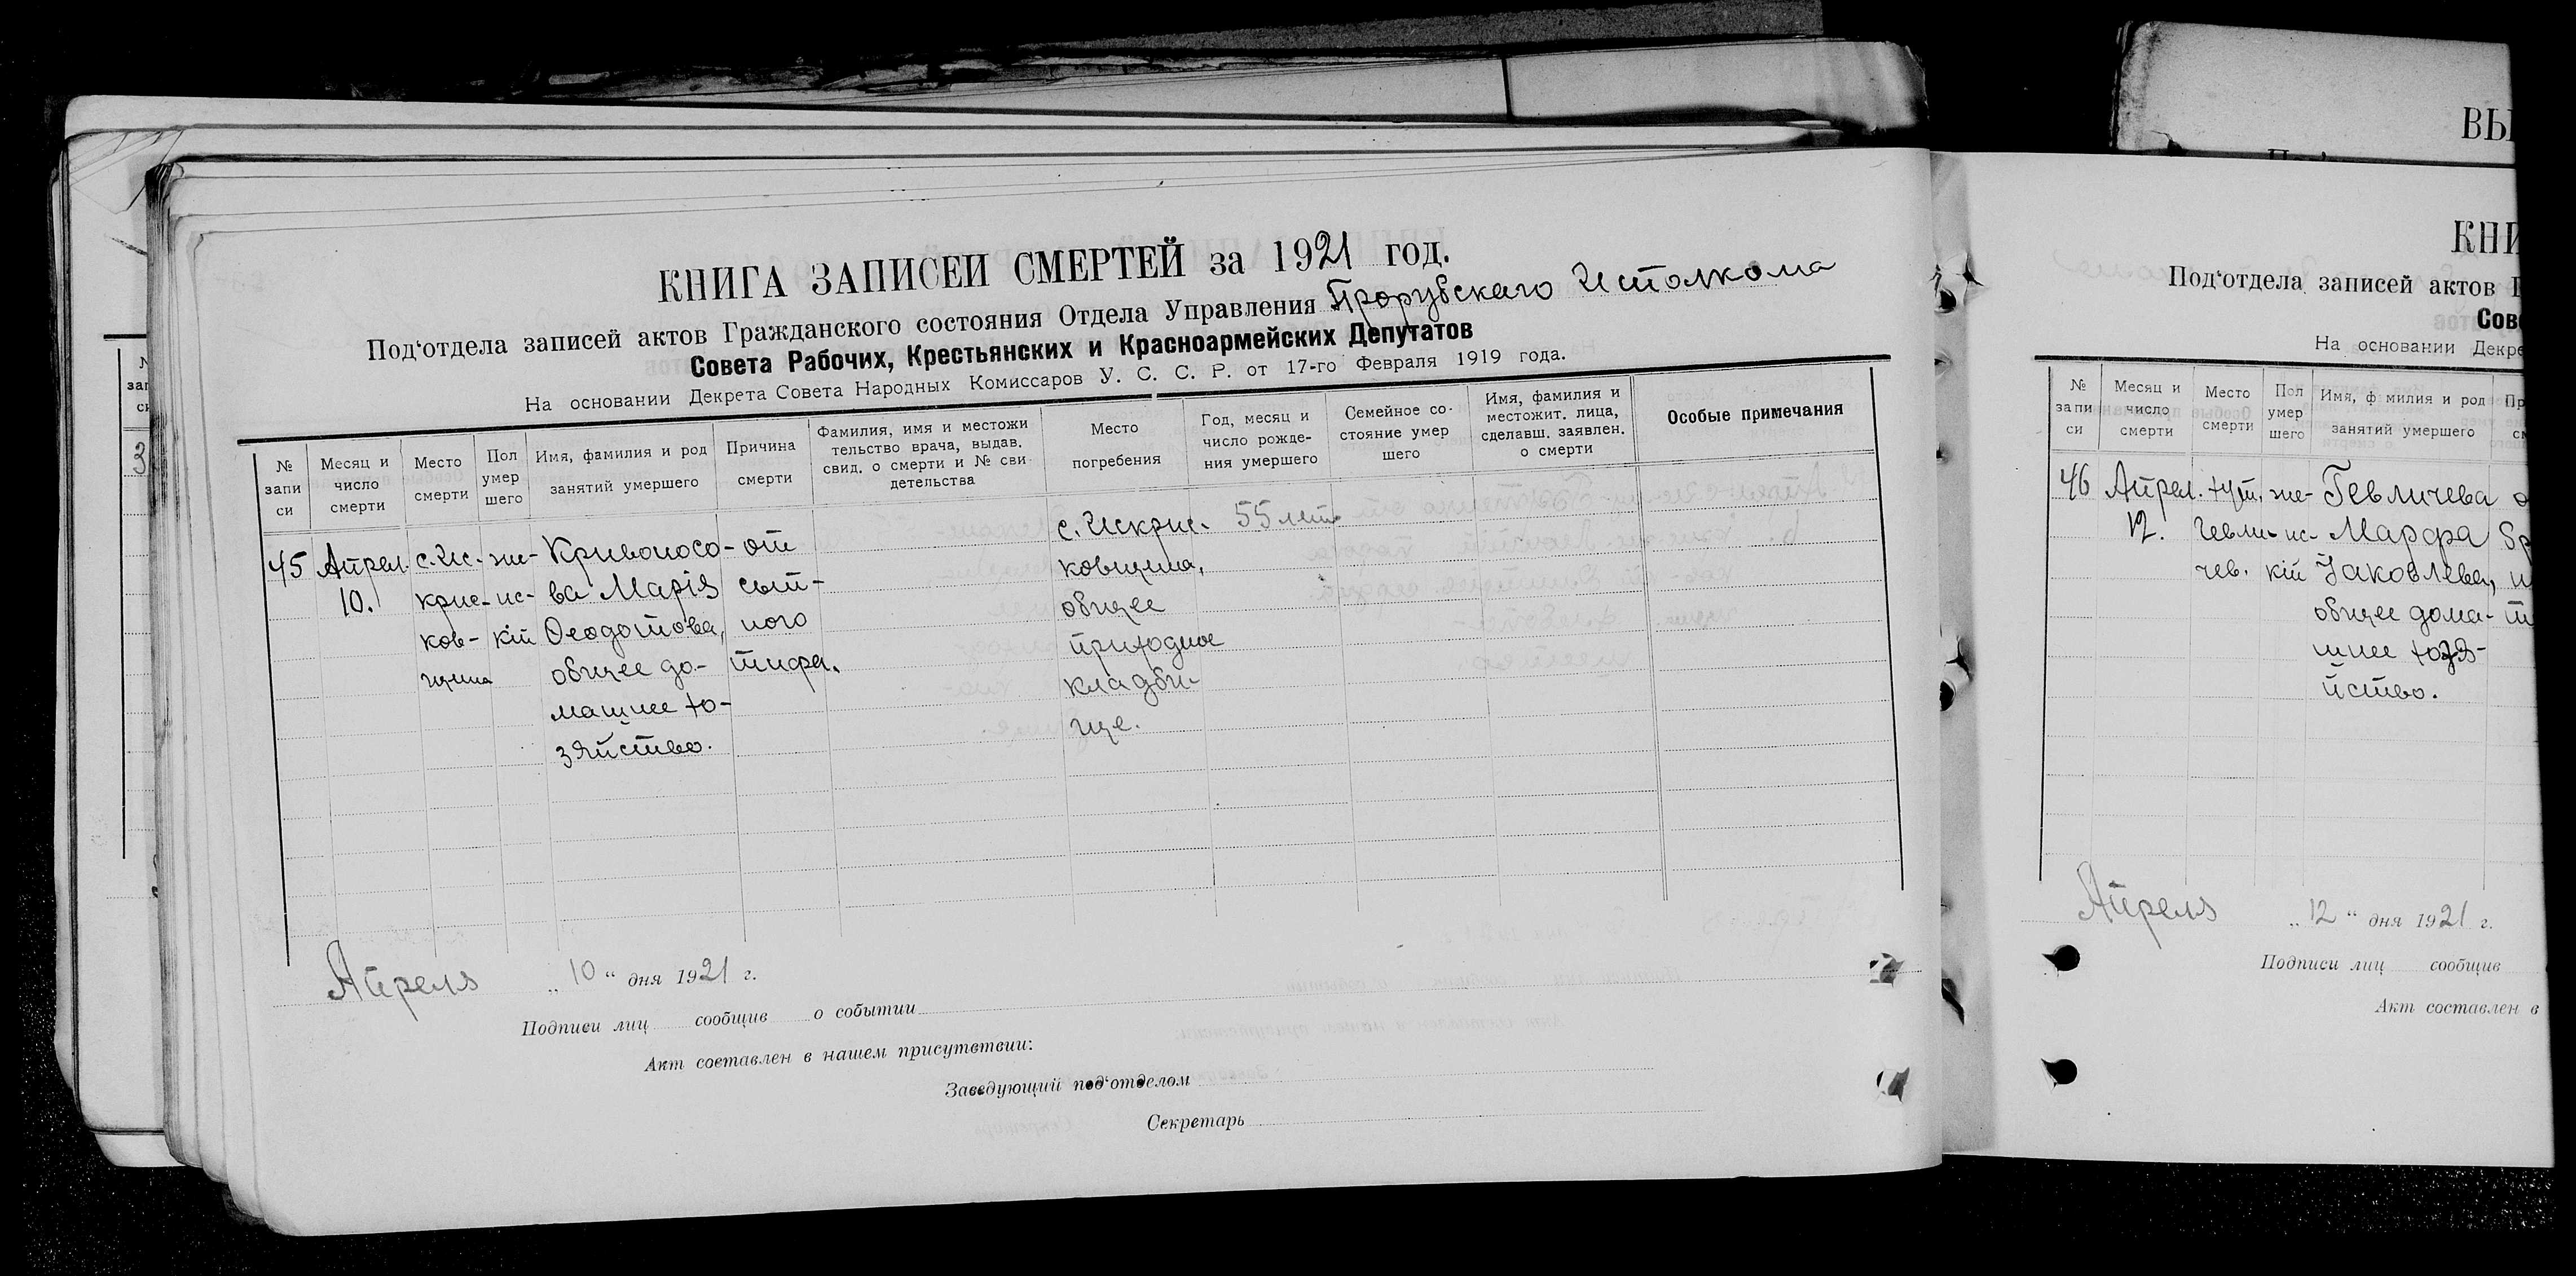 КНИГА ЗАПИСЕЙ СМЕРТЕЙ за 1921 год.
Под‘отдела записей актов Гражданского состояния Отдела Управления Прорубскаго Исполкома
Совета Рабочих, Крестьянских и Красноармейских Депутатов
На основании Декрета Совета Народных Комиссаров У. С. С. Р. от 17-го Февраля 1919 года.
№ запи си
Месяц и число смерти
Место смерти
Пол умер шего
Имя, фамилия и род занятий умершего
Причина смерти
Фамилия, имя и местожи тельство врача, выдав. свид. о смерти и № сви детельства
Место погребения
Год, месяц и число рожде- ния умершего
Семейное со- стояние умер шего
Имя, фамилия и местожит. лица, сделавш. заявлен. о смерти
Особые примечания
45
Апрел.
10.
с. Ис-
крис-
ков-
щина
же-
нс-
кій
Кривоносо-
ва Марія
Феодотова,
общее до-
машнее хо-
зяйство.
от
сып-
ного
тифа.
с. Искрис-
ковщина,
общее
приходное
кладби-
ще.
55 лет
Апреля „10“ дня 1921 г.
Подписи лиц сообщив о событии
Акт составлен в нашем присутствии:
Заведующий под‘отделом
Секретарь
ВЫ
КНИ
Под‘отдела записей актов Г
Сове
На основании Декре
№ запи си
Месяц и число смерти
Место смерти
Пол умер шего
Имя, фамилия и род занятий умершего
Пр
46
Апрел.
12.
хут.
Гевли-
чев.
же-
нс-
кій
Гевличева
Марфа
Яковлева,
общее дома-
шнее хозя-
йство.
Апреля „12“ дня 1921 г.
Подписи лиц сообщив
Акт составлен в